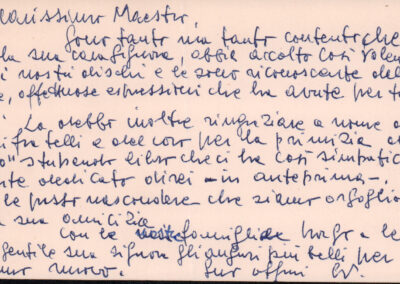 arissimo Maestro,
Sono tanto ma tanto contento che
la sua consignora, abbia accolto così volen
i nostri dischi e le sono riconoscente del
, affettuose espressioni che ha avute per t
Lo debbo inoltre ringraziare a nome d
fratelli e del coro per la primizia d
o" stupendo libro che ci ha così simpatic
te dedicato direi - in anteprima -.
le posso nascondere che siamo orgoglio
sua amicizia
con le famiglia porgo a le
gentile sua signora gli auguri più belli per
nuovo.